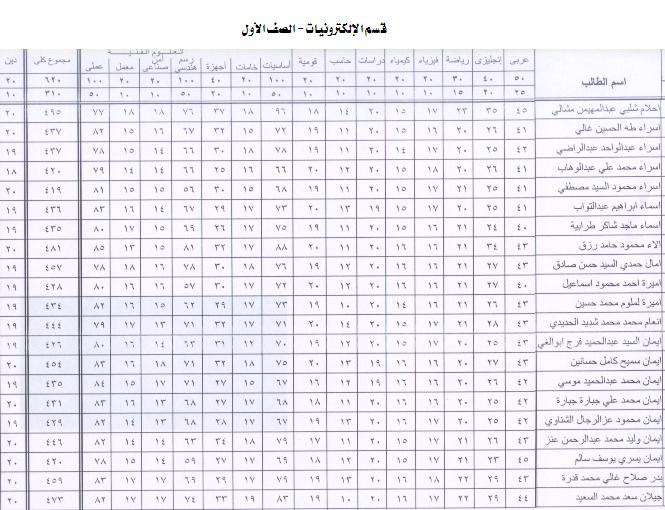 قسم الإلكترونيات - الصف الأول
العلوم الفنية
اسم الطالب عربي إنجليزي رياضة فيزياء كيمياء دراسات حاسب قومية أساسيات خامات أجهزة رسم هندسي أمن صناعي معمل عملي مجموع كلى دين
٥٠ ٤٠ ٣٠ ٢٠ ٢٠ ٢٠ ٢٠ ٢٠ ١٠٠ ٢٠ ٤٠ ١٠٠ ٢٠ ٢٠ ١٠٠ ٦٢٠ ٢٠
٢٥ ١٠ ١٥ ١٠ ١٠ ١٠ ١٠ ١٠ ٥٠ ١٠ ٢٠ ٥٠ ١٠ ١٠ ٥٠ ٣١٠ ١٠
احلام شلبي عبدالمهيمن مشالي ٤٥ ٣٥ ٢٣ ١٧ ١٥ ٢٠ ١٤ ١٨ ٩٦ ١٨ ٣٧ ٧٦ ١٨ ١٨ ٧٧ ٤٩٥ ٢٠
اسراء طه الحسين غالي ٤١ ٢٦ ٢٠ ١٧ ١٥ ٢٠ ١١ ١٩ ٧٢ ١٥ ٣٢ ٦٧ ١٦ ١٥ ٨٢ ٤٣٧ ٢٠
اسراء عبدالواحد عبدالراضي ٤٢ ٢٥ ٢٠ ١٧ ١٥ ٢٠ ١١ ١٩ ٧٨ ١٨ ٣٠ ٦٦ ١٤ ١٥ ٧٨ ٤٣٧ ١٩
اسراء محمد علي عبدالوهاب ٤١ ٢٦ ٢٠ ١٨ ١٥ ٢٠ ١١ ٢٠ ٦٦ ١٦ ٢٥ ٦٦ ١٤ ١٤ ٧٩ ٤٢٠ ١٨
اسراء محمود السيد مصطفي ٤١ ٢٥ ٢١ ١٧ ١٥ ٢٠ ١١ ١٩ ٦٨ ١٥ ٣٠ ٥٦ ١٥ ١٥ ٨١ ٤١٩ ٢٠
اسماء ابراهيم عبدالتواب ٤١ ٢٥ ٢٠ ١٧ ١٥ ١٩ ١٣ ٢٠ ٧٣ ١٧ ٢٩ ٦٧ ١٤ ١٦ ٨٣ ٤٣٦ ١٩
اسماء ماجد شاكر طرابية ٤٠ ٢٤ ٢١ ١٧ ١٦ ٢٠ ١١ ١٩ ٧٥ ١٧ ٢٦ ٦٩ ١٥ ١٧ ٨٠ ٤٣٥ ١٩
الاء محمود حامد رزق ٤٣ ٣٤ ٢١ ١٦ ١٦ ٢٠ ١١ ٢٠ ٨٨ ١٧ ٣٢ ٨١ ١٥ ١٣ ٨٥ ٤٨١ ٢٠
امال حمدي السيد حسن صادق ٤٣ ٢٧ ٢١ ١٦ ١٦ ٢٠ ١١ ١٩ ٧٦ ١٨ ٣٠ ٧٨ ١٦ ١٨ ٧٨ ٤٥٧ ١٩
اميرة احمد محمود اسماعيل ٤٠ ٢٧ ٢١ ١٧ ١٥ ٢٠ ١١ ٢٠ ٦٧ ١٧ ٣٠ ٥٧ ١٦ ١٦ ٨٠ ٤٢٨ ١٩
اميرة لملوم محمد حسين ٤٣ ٢٦ ٢١ ١٦ ١٤ ٢٠ ١٠ ١٩ ٧٣ ١٧ ٢٩ ٦٢ ١٥ ١٦ ٨٢ ٤٣٤ ١٩
انعام محمد محمد شديد الحديدي ٤٣ ٢٨ ٢١ ١٧ ١٥ ٢٠ ١٤ ٢٠ ٧١ ١٧ ٣٢ ٧١ ١٣ ١٧ ٧٩ ٤٤٤ ١٩
ايمان السيد عبدالحميد فرج ابوالغي ٤٣ ٢٥ ٢٠ ١٦ ١٦ ٢٠ ١١ ١٩ ٧٠ ١٢ ٣١ ٦٣ ١٤ ١٦ ٨٠ ٤٢٦ ١٩
ايمان سميح كامل حسانين ٤٣ ٢٧ ٢٠ ١٦ ١٦ ١٩ ١٣ ٢٠ ٧٥ ١٨ ٣٢ ٧١ ١٨ ١٦ ٨٣ ٤٥٤ ٢٠
ايمان محمد عبدالحميد موسي ٤٢ ٢٦ ٢٠ ١٦ ١٦ ١٩ ١٢ ١٦ ٦٧ ١٥ ٢٧ ٧١ ١٧ ١٥ ٨٤ ٤٣٥ ١٩
ايمان محمد علي جبارة جبارة ٤٢ ٢٥ ٢٠ ١٦ ١٦ ٢٠ ١١ ١٨ ٦٨ ١٧ ٢٧ ٦٨ ١٣ ١٦ ٨٣ ٤٣١ ٢٠
ايمان محمود عزالرجال الشناوي ٤٢ ٢٥ ٢٠ ١٦ ١٧ ٢٠ ١٣ ١٩ ٦٧ ١٧ ٢٨ ٦٨ ١٣ ١٤ ٨٢ ٤٢٩ ١٩
ايمان وليد محمد عبدالرحمن عنز ٤٣ ٢٦ ٢١ ١٧ ١٥ ٢٠ ١١ ١٧ ٧٩ ١٨ ٣٤ ٦٣ ١٤ ١٤ ٨٢ ٤٤٦ ٢٠
ايمان يسري يوسف سالم ٤٥ ٢٣ ٢١ ١٧ ١٥ ٢٠ ١١ ١٨ ٧٠ ١٧ ٢٧ ٥٩ ١٤ ١٥ ٧٨ ٤٢٠ ٢٠
بدر صلاح غالي محمد قدرة ٤٣ ٢٩ ٢٢ ١٨ ١٦ ٢٠ ١٢ ١٩ ٧٧ ١٧ ٢٩ ٦٩ ١٧ ١٧ ٨٣ ٤٥٩ ٢٠
جيلان سعد محمد السعيد ٤٤ ٢٩ ٢٢ ١٧ ١٦ ٢٠ ١٠ ١٩ ٨٣ ١٧ ٣٣ ٧٤ ١٧ ١٧ ٨٢ ٤٧٣ ٢٠